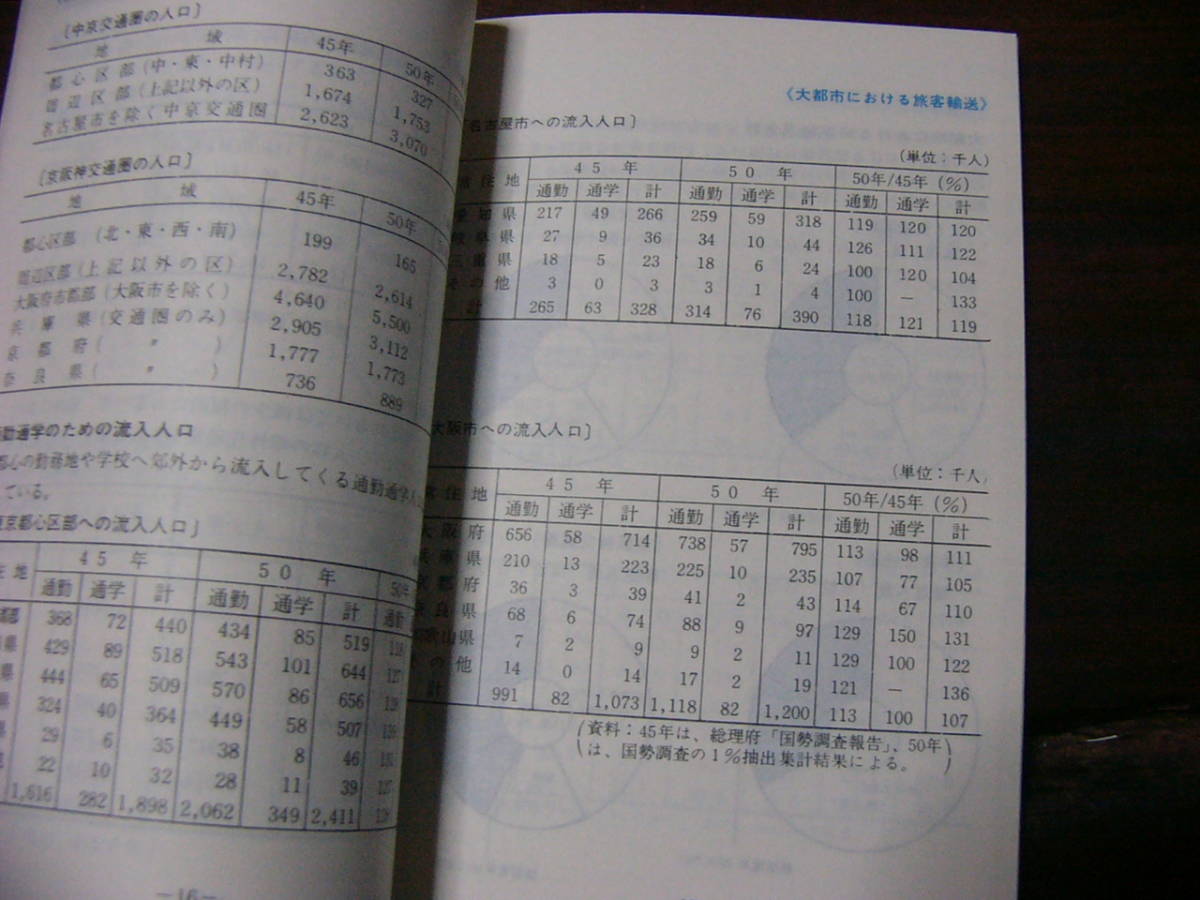 〔中京交通圏の人口〕
地 域 45年 50年
都心区部(中・東・中村) 363 327
周辺区部(上記以外の区) 1,674 1,753
名古屋市を除く中京交通圏 2,623 3,070
〔京阪神交通圏の人口〕
地 域 45年 50年
都心区部 (北・東・西・南) 199 165
周辺区部(上記以外の区) 2,782 2,614
大阪府市郡部(大阪市を除く) 4,640 5,500
兵庫県(交通圏のみ) 2,905 3,112
京都府( 〃 ) 1,777 1,773
奈良県( 〃 ) 736 889
勤通学のための流入人口
都心の勤務地や学校へ郊外から流入してくる通勤通学
ている。
東京都心区部への流入人口〕
住地 45年 50年 50年
通勤 通学 計 通勤 通学 計 通勤
都 368 72 440 434 85 519 118
県 429 89 518 543 101 644 127
県 444 65 509 570 86 656 128
県 324 40 364 449 58 507 139
29 6 35 38 8 46
22 10 32 28 11 39 127
1,616 282 1,898 2,062 349 2,411
―16―
《大都市における旅客輸送》
〔名古屋市への流入人口〕
(単位:千人)
常住地 45年 50年 50年/45年(%)
通勤 通学 計 通勤 通学 計 通勤 通学 計
愛知県 217 49 266 259 59 318 119 120 120
岐阜県 27 9 36 34 10 44 126 111 122
三重県 18 5 23 18 6 24 100 120 104
その他 3 0 3 3 1 4 100 ― 133
計 265 63 328 314 76 390 118 121 119
大阪市への流入人口〕
(単位:千人)
常住地 45年 50年 50年/45年(%)
通勤 通学 計 通勤 通学 計 通勤 通学 計
大阪府 656 58 714 738 57 795 113 98 111
兵庫県 210 13 223 225 10 235 107 77 105
京都府 36 3 39 41 2 43 114 67 110
奈良県 68 6 74 88 9 97 129 150 131
和歌山県 7 2 9 9 2 11 129 100 122
その他 14 0 14 17 2 19 121 ― 136
計 991 82 1,073 1,118 82 1,200 113 100 107
(資料:45年は、総理府「国勢調査報告」、50年
は、国勢調査の1%抽出集計結果による。)